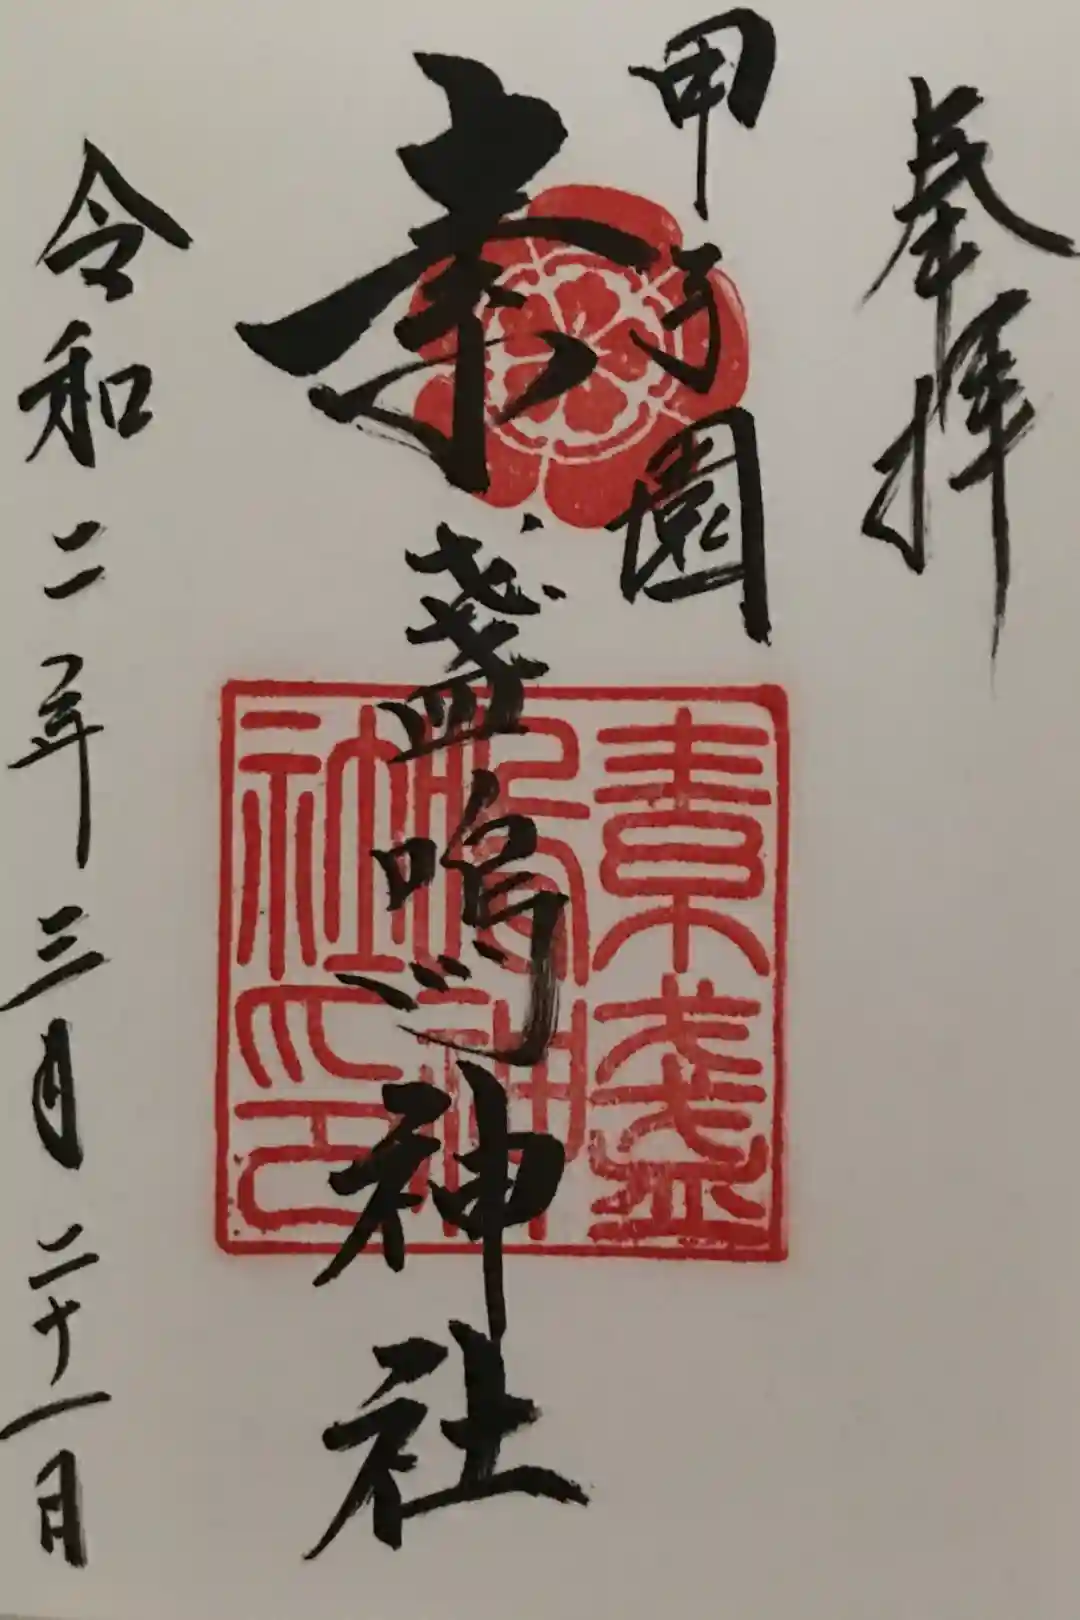 奉拝
甲子園
素盞嗚神社
令和二年三月二十一日
素盞
嗚神
社印